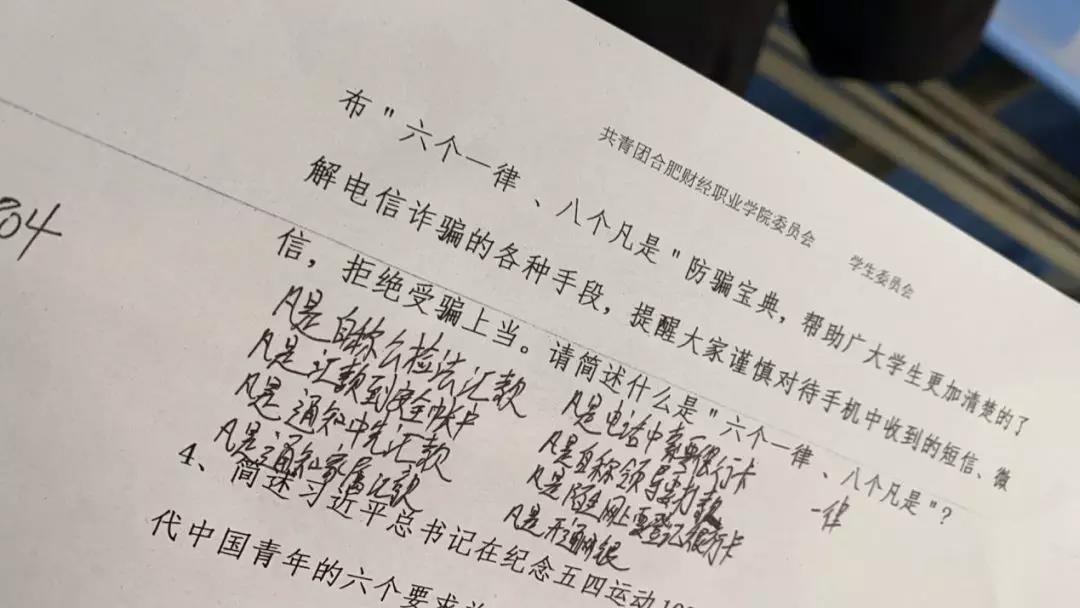 共青团合肥财经职业学院委员会 学生委员会
布"六个一律、八个凡是"防骗宝典,帮助广大学生更加清楚的了
解电信诈骗的各种手段,提醒大家谨慎对待手机中收到的短信、微
信,拒绝受骗上当。请简述什么是"六个一律、八个凡是"?
凡是自称公检法汇款
凡是汇款到安全帐卡
凡是通知中先汇款
凡是通知家属汇款
凡是电话中索要银行卡
凡是自称领导要力款
凡是陌生网上要登记银行卡
凡是开通网银
一律
804
4、简述习近平总书记在纪念五四运动10
代中国青年的六个要求